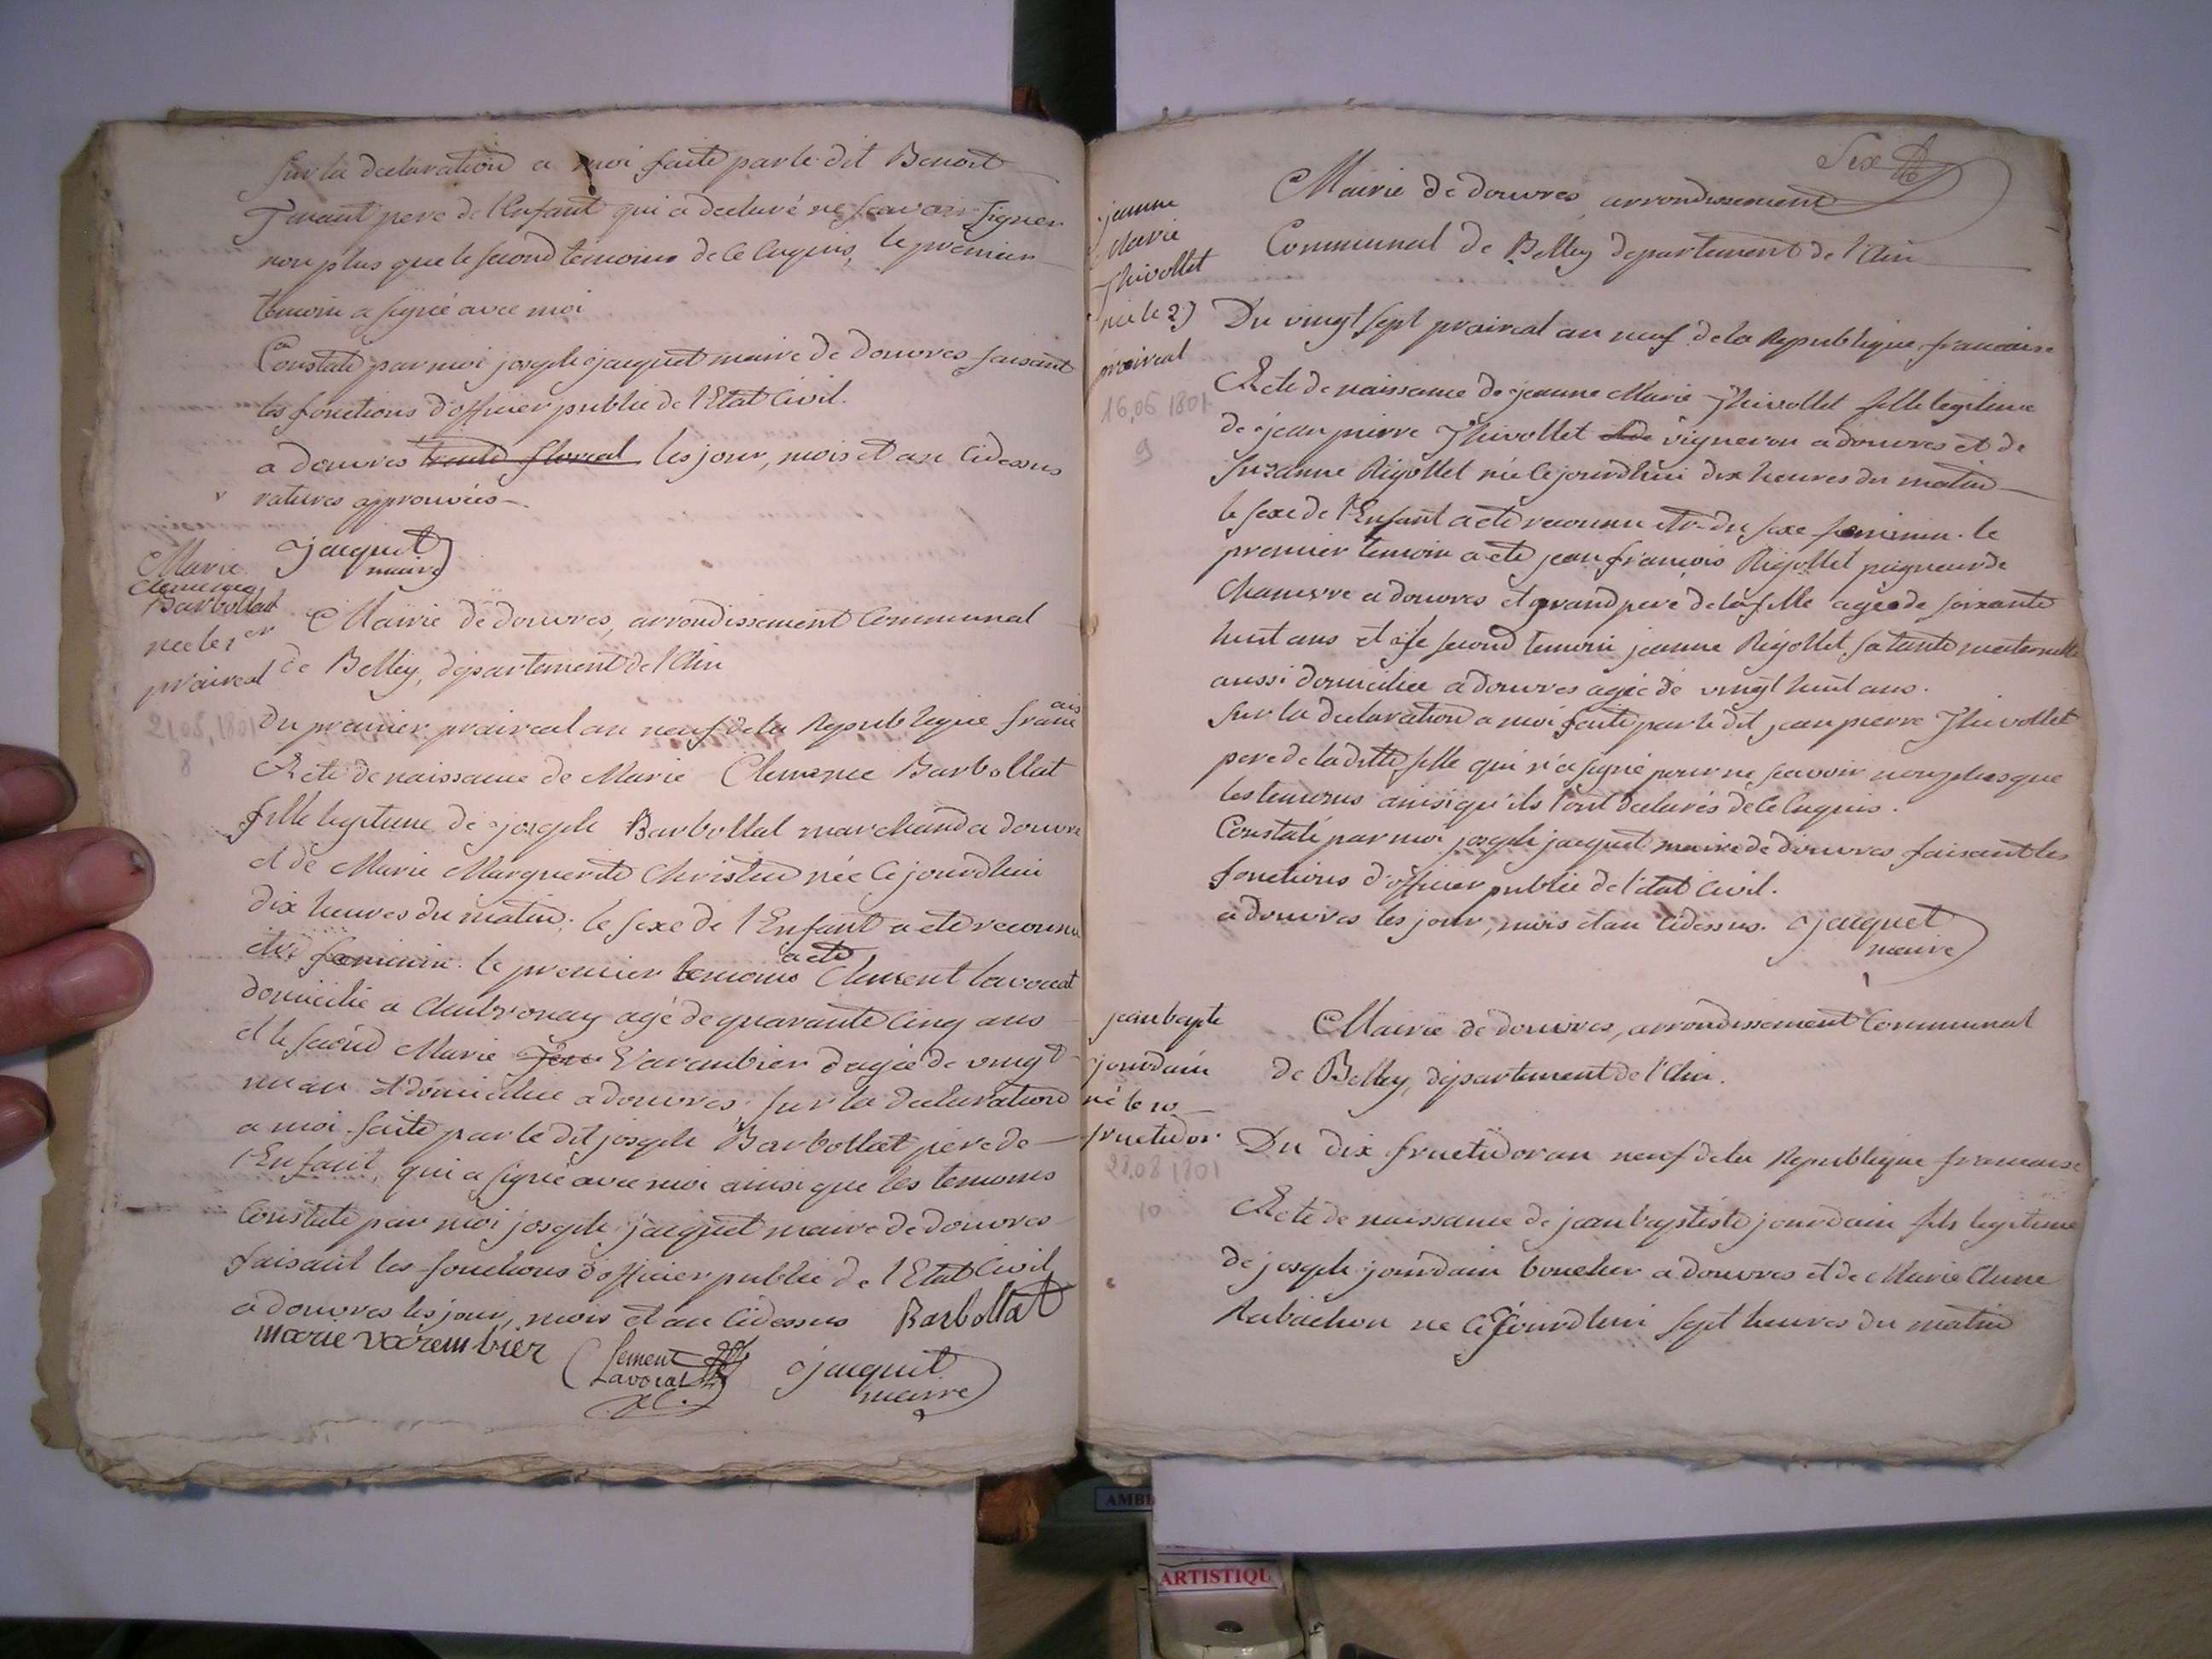 sur la declaration a moi faite par le dit Benoit
pere de l'Enfant qui a declaré ne scavoir signer
non plus que le second temoins de ce enquis, le premier
temoin a signé avec moi
Constaté par moi joseph jacquet maire de douvres faisant
les fonctions d'officier public de l'Etat Civil.
a douvres trente floreal les jour, mois et an cidessus
ratures approuvées
jacquet
maire
Marie
Clemence
Barbollat
née le 1er
praireal
21,05,1801
8
Mairie de douvres, arrondissement Communal
de Belley, departement de l'Ain
du premier praireal an neuf de la Republique franc
ais
Acte de naissance de Marie Clemence Barbollat
fille legitime de joseph Barbollat marchand a douvre
et de Marie Marguerite Christin née Cejourdhui
dix heures du matin; le sexe de l'Enfant a eté reconnu
etre feminin. le premier temoins a eté Clement lavocat
domicilié a Ambronay agé de quarante Cinq ans
et le second Marie Varambier agée de vingt
un an et domiciliee a douvres. sur la declaration
a moi faite par le dit joseph Barbollat pere de
l'Enfant, qui a signé avec moi ainsi que les temoins
Constaté par moi joseph jacquet maire de douvres
faisant les fonctions d'officier public de l'Etat Civil
a douvres les jour, mois et an cidessus Barbollat
marie varembier
Clement
Lavocat
jacquet
maire
Six
jeanne
Marie
Thivollet
née le 27
praireal
16,06 1801
9
Mairie de douvres, arrondissement
Communal de Belley departement de l'Ain
Du vingt sept praireal an neuf de la Republique francaise
Acte de naissance de jeanne Marie Thivollet fille legitime
de jean pierre Thivollet vigneron a douvres et de
Suzanne Rigollet née Cejourdhui dix heures du matin
le sexe de l'Enfant a eté reconnu etre du sexe feminin. le
premier temoin a eté jean francois Rigollet peigneur de
Chanvre a douvres et grand pere de la fille agé de soixante
huit ans et le second temoin jeanne Rigollet sa tante maternelle
aussi domiciliée a douvres agée de vingt huit ans.
Sur la declaration a moi faite par le dit jean pierre Thivollet
pere de la ditte fille qui n'a signé pour ne scavoir non plus que
les temoins ainsi qu'ils l'ont declarés de ce enquis.
Constaté par moi joseph jacquet maire de douvres faisant les
fonctions d'officier public de l'etat civil.
a douvres les jour, mois et an cidessus. jacquet
maire
jean bapte
jourdain
né le 10
fructidor
28.08 1801
10
Mairie de douvres, arrondissement Communal
de Belley, departement de l'Ain.
Du dix fructidor an neuf de la Republique francaise
Acte de naissance de jean baptiste jourdain fils legitime
de joseph jourdain boucher a douvres et de Marie Anne
Rubachon né Cejourdhui sept heures du matin
AMBE
ARTISTIQU